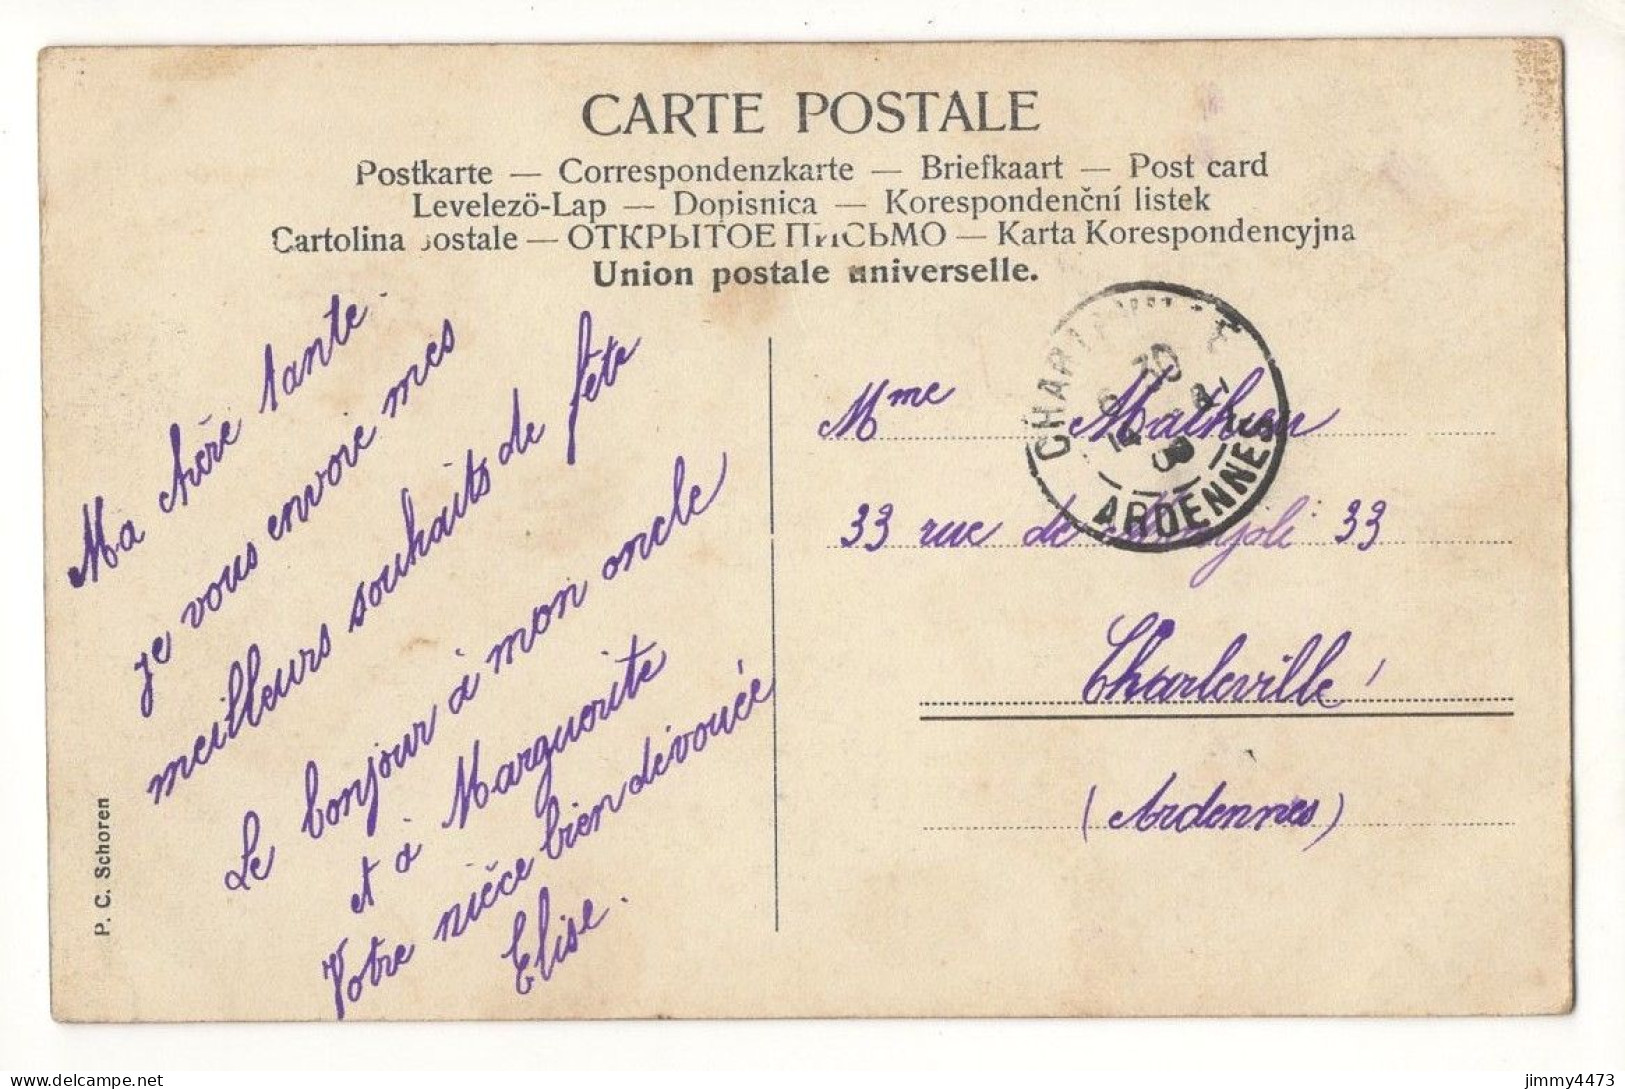 CARTE POSTALE
Postkarte — Correspondenzkarte — Briefkaart — Post card
Levelezö-Lap — Dopisnica — Korespondenční listek
Cartolina postale — ОТКРЫТОЕ ПИСЬМО — Karta Korespondencyjna
Union postale universelle.
Ma chère tante
je vous envoie mes
meilleurs souhaits de fête
Le bonjour à mon oncle
et à Marguerite
Votre nièce bien dévouée
Elise.
P. C. Schoren
CHARLEVILLE
ARDENNES
Mme Mathieu
33 rue de 33
Charleville
(Ardennes)
jimmy4473
delcampe.net